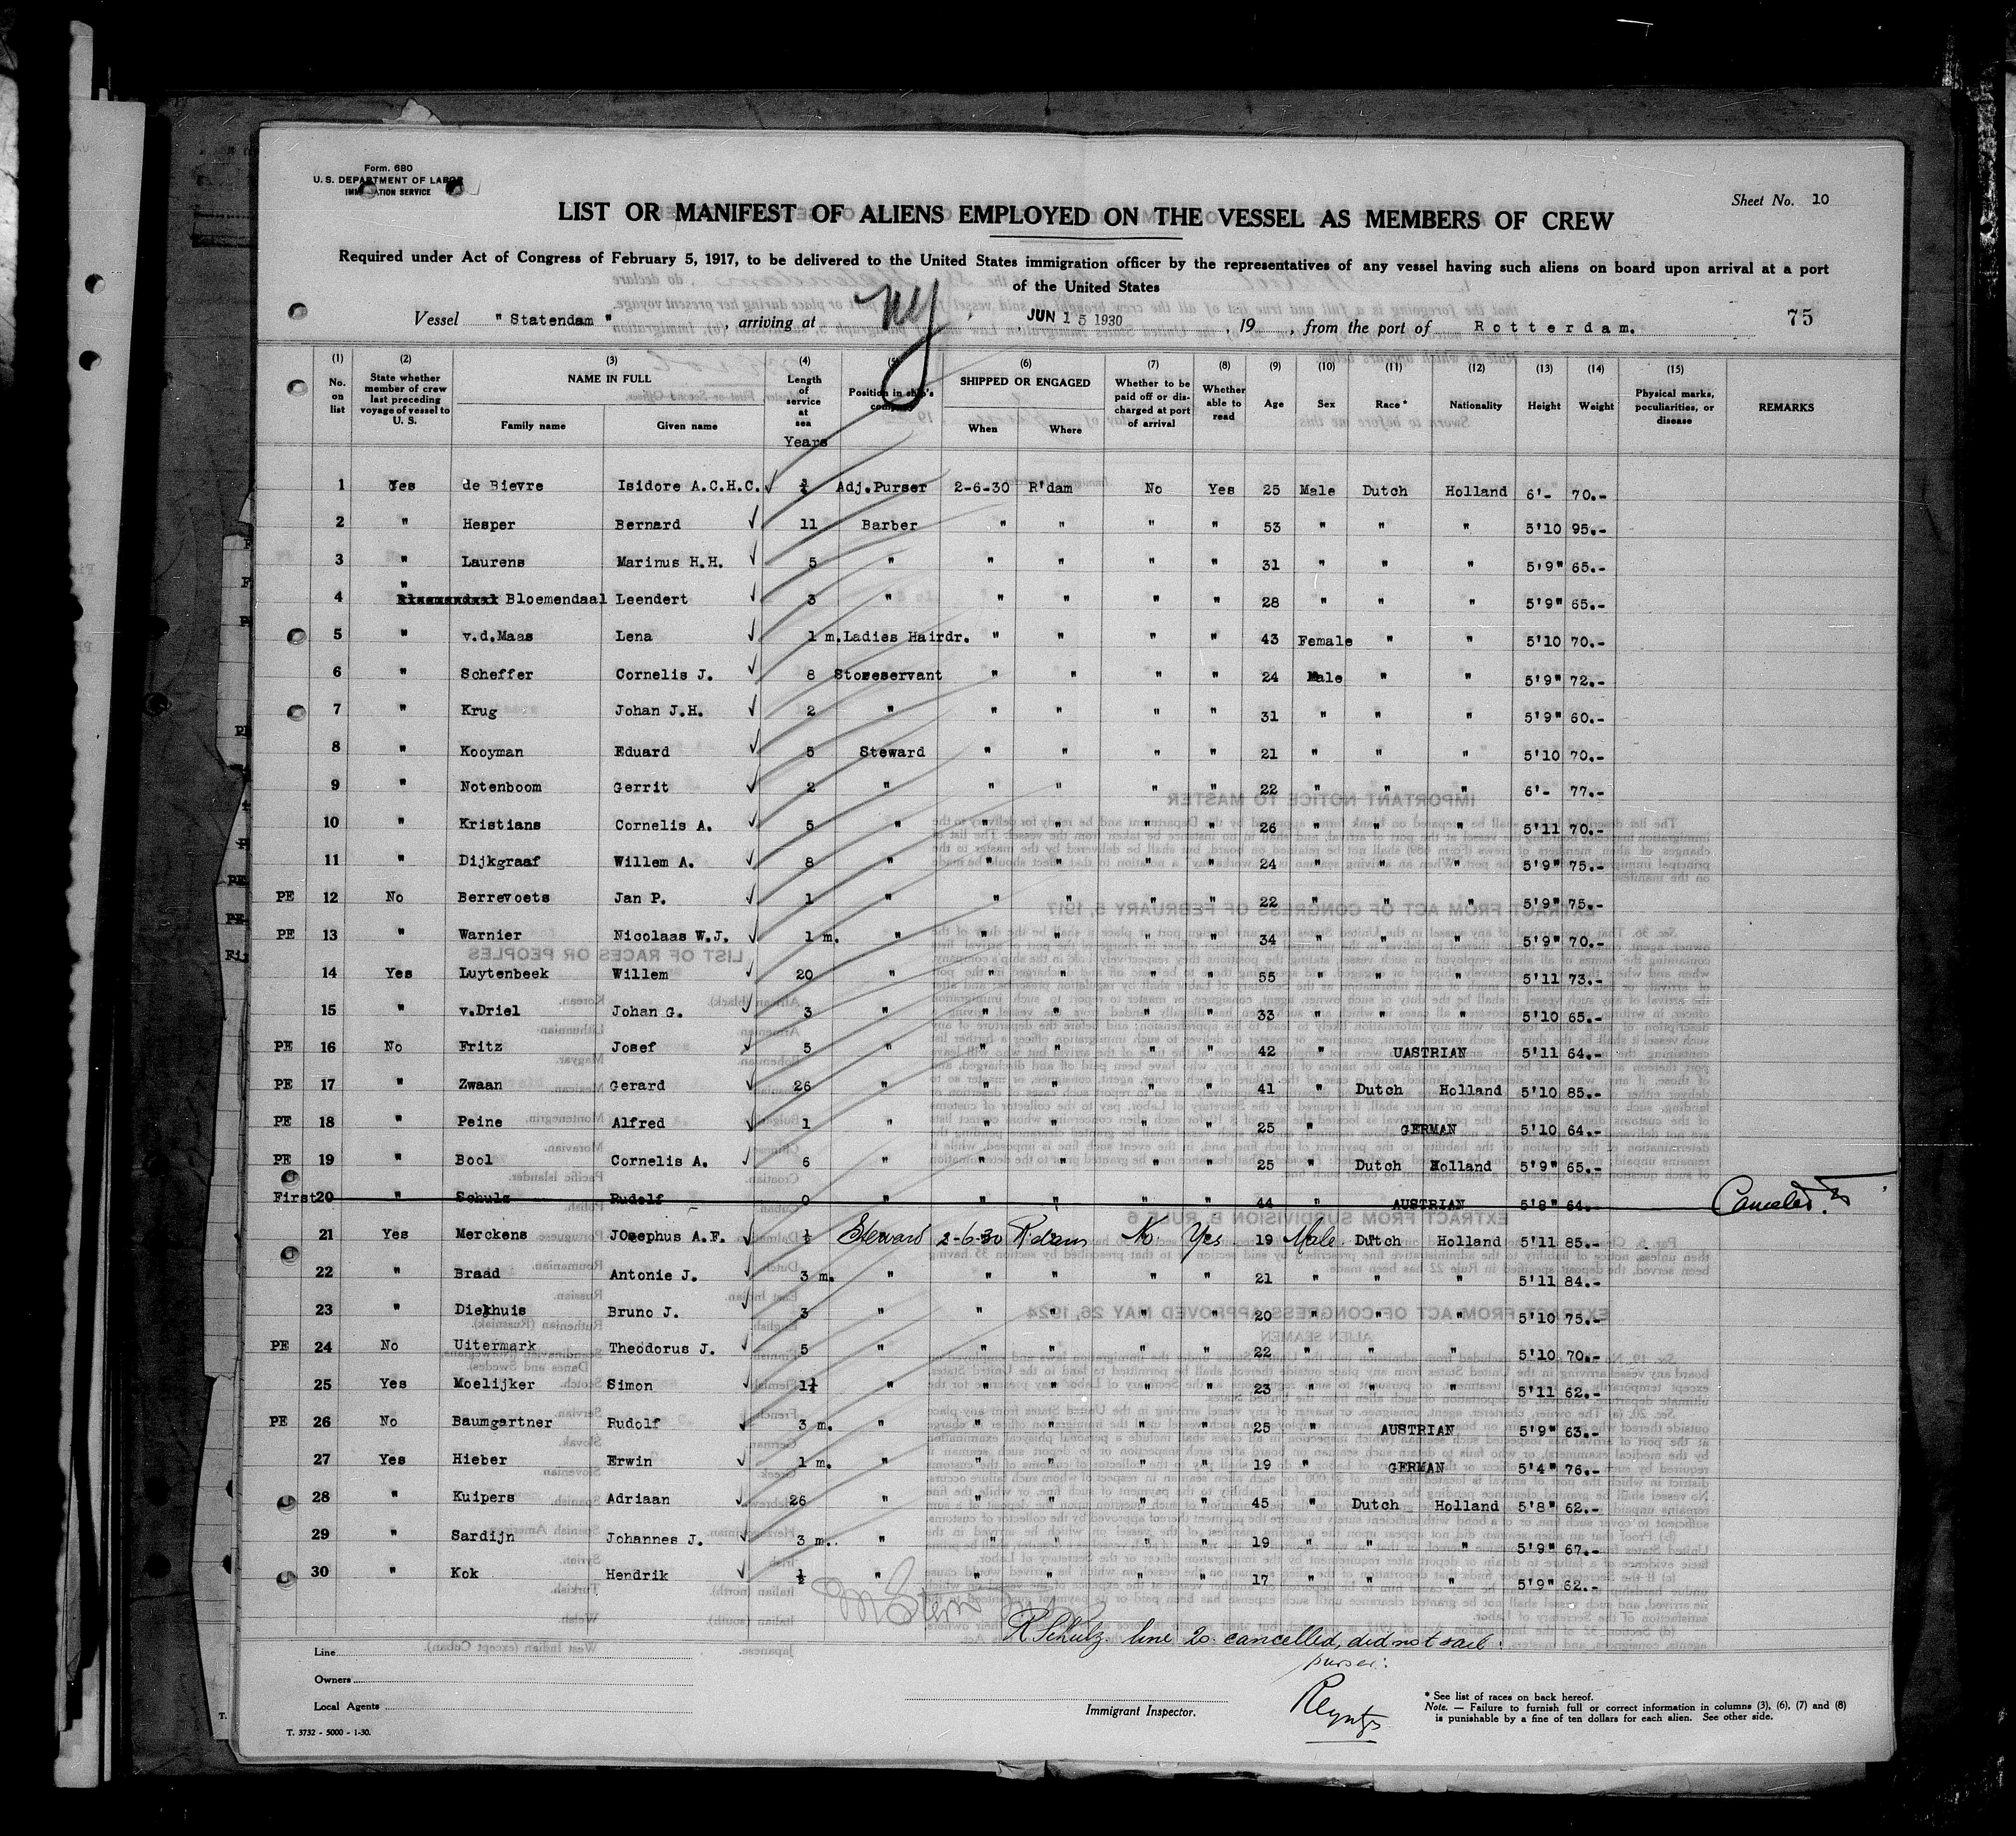 Form. 680
U. S. DEPARTMENT OF LABOR
IMMIGRATION SERVICE
Sheet No. 10
LIST OR MANIFEST OF ALIENS EMPLOYED ON THE VESSEL AS MEMBERS OF CREW
Required under Act of Congress of February 5, 1917, to be delivered to the United States immigration officer by the representatives of any vessel having such aliens on board upon arrival at a port
of the United States
Vessel "Statendam", arriving at NY, JUN 15 1930, 19 , from the port of Rotterdam. 75
(1) No. on list (2) State whether member of crew last preceding voyage of vessel to U. S. (3) NAME IN FULL Family name Given name (4) Length of service at sea Years (5) Position in ship's company (6) SHIPPED OR ENGAGED When Where (7) Whether to be paid off or discharged at port of arrival (8) Whether able to read (9) Age (10) Sex (11) Race* (12) Nationality (13) Height (14) Weight (15) Physical marks, peculiarities, or disease REMARKS
1 Yes de Bievre Isidore A.C.H.C. Adj.Purser 2-6-30 R'dam No Yes 25 Male Dutch Holland 6'- 70.-
2 " Hesper Bernard 11 Barber " " " " 53 " " " 5'10 95.-
3 " Laurens Marinus H.H. 5 " " " " " 31 " " " 5'9" 65.-
4 " Bloemendaal Leendert 3 " " " " " 28 " " " 5'9" 65.-
5 " v.d.Maas Lena 1 m. Ladies Hairdr. " " " " 43 Female " " 5'10 70.-
6 " Scheffer Cornelis J. 8 Storeservant " " " " 24 Male " " 5'9" 72.-
7 " Krug Johan J.H. 2 " " " " " 31 " " " 5'9" 60.-
8 " Kooyman Eduard 5 Steward " " " " 21 " " " 5'10 70.-
9 " Notenboom Gerrit 2 " " " " " 22 " " " 6'- 77.-
10 " Kristians Cornelis A. 5 " " " " " 26 " " " 5'11 70.-
11 " Dijkgraaf Willem A. 8 " " " " " 24 " " " 5'9" 75.-
PE 12 No Berrevoets Jan P. 1 " " " " " 22 " " " 5'9" 75.-
PE 13 " Warnier Nicolaas W.J. 1 m. " " " " " 34 " " " 5'9" 70.-
14 Yes Luytenbeek Willem 20 " " " " " 55 " " " 5'11 73.-
15 " v.Driel Johan G. 3 " " " " " 33 " " " 5'10 65.-
PE 16 No Fritz Josef 5 " " " " " 42 " UASTRIAN 5'11 64.-
PE 17 " Zwaan Gerard 26 " " " " " 41 " Dutch Holland 5'10 85.-
PE 18 " Peine Alfred 1 " " " " " 25 " GERMAN 5'10 64.-
PE 19 " Bool Cornelis A. 6 " " " " " 25 " Dutch Holland 5'9" 65.-
First 20 " Schulz Rudolf 0 " " " " " 44 " AUSTRIAN 5'8" 64.- Canceled.
21 Yes Merckens JOsephus A.F. ½ Steward 2-6-30 R'dam No Yes 19 Male Dutch Holland 5'11 85.-
22 " Braad Antonie J. 3 m. " " " " " 21 " " " 5'11 84.-
23 " Diekhuis Bruno J. 3 " " " " " 20 " " " 5'10 75.-
PE 24 No Uitermark Theodorus J. 5 " " " " " 22 " " " 5'10 70.-
25 Yes Moelijker Simon " " " " " 23 " " " 5'11 62.-
PE 26 No Baumgartner Rudolf 3 m. " " " " " 25 " AUSTRIAN 5'9" 63.-
27 Yes Hieber Erwin 1 m. " " " " " 19 " GERMAN 5'4" 76.-
28 " Kuipers Adriaan 26 " " " " " 45 " Dutch Holland 5'8" 62.-
29 " Sardijn Johannes J. 3 m. " " " " " 19 " " " 5'9" 67.-
30 " Kok Hendrik ½ " " " " " 17 " " " 5'9" 62.-
R Schulz line 20 cancelled, did not sail.
purser:
Line
Owners
Local Agents
Immigrant Inspector.
* See list of races on back hereof.
Note. — Failure to furnish full or correct information in columns (3), (6), (7) and (8)
is punishable by a fine of ten dollars for each alien. See other side.
T. 3732 - 5000 - 1-30.